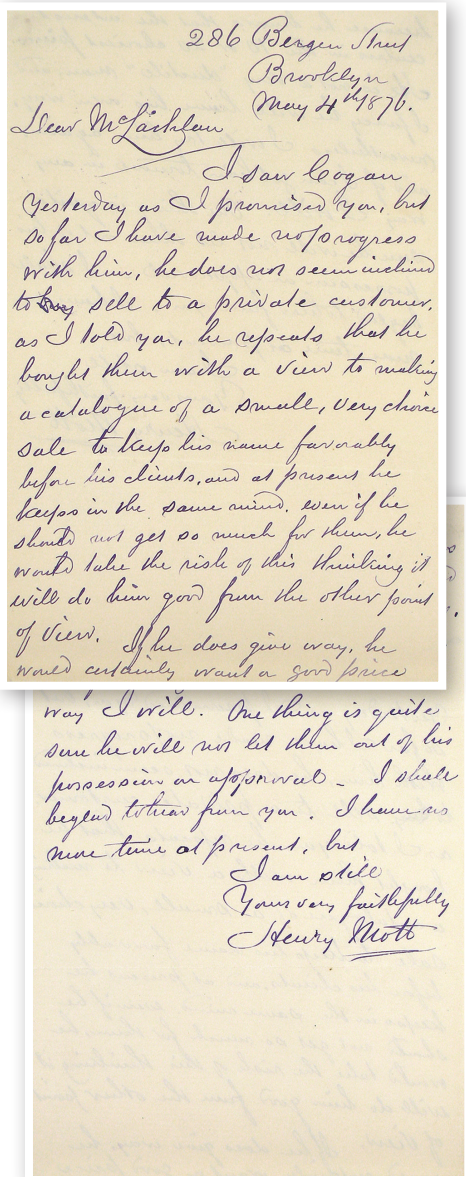 286 Bergen Street
Brooklyn
May 4th 1876.
Dear McLachlan
I saw Cogan
yesterday as I promised you, but
so far I have made no progress
with him, he does not seem inclined
to buy sell to a private customer,
as I told you, he repeats that he
bought them with a view to making
a catalogue of a small, very choice
sale to keep his name favorably
before his clients, and at present he
keeps in the same mind. even if he
should not get so much for them, he
would take the risk of this thinking it
will do him good from the other point
of view. If he does give way, he
would certainly want a good price
way I will. One thing is quite
sure he will not let them out of his
possession on approval - I shall
be glad to hear from you. I have no
more time at present, but
I am still
Yours very faithfully
Henry Mott